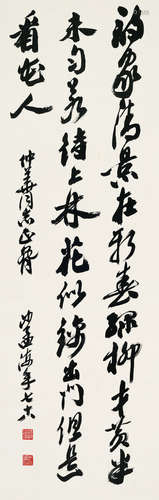 诗家清景在新春绿柳才黄半
未匀若待上林花似锦出门俱是
看花人
仲华同志正腕
沙孟海年七十六